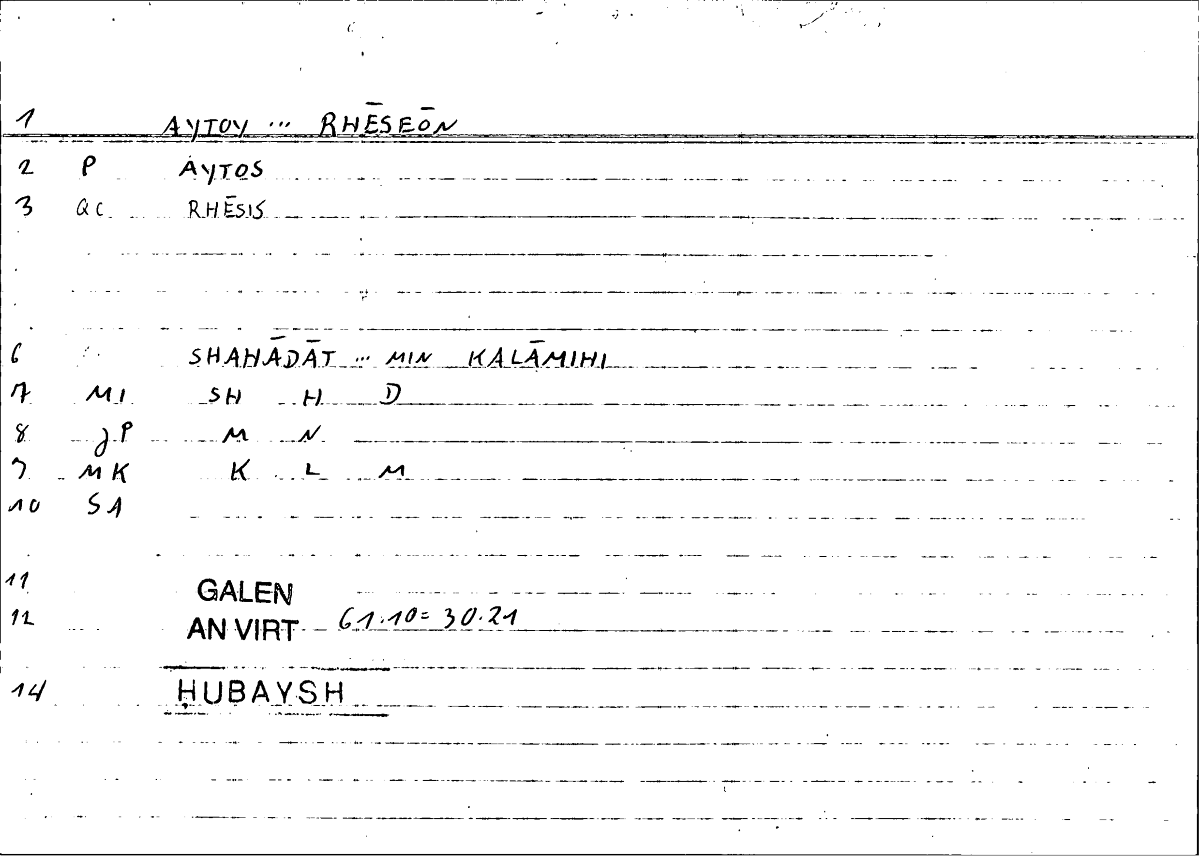 1 AYTOY ... RHĒSEŌN
2 P AYTOS
3 QC RHĒSIS
6 SHAHĀDĀT ... MIN KALĀMIHI
7 MI SH H D
8 JP M N
9 MK K L M
10 SA
11 GALEN
12 AN VIRT 61.10= 30.21
14 ḤUBAYSH